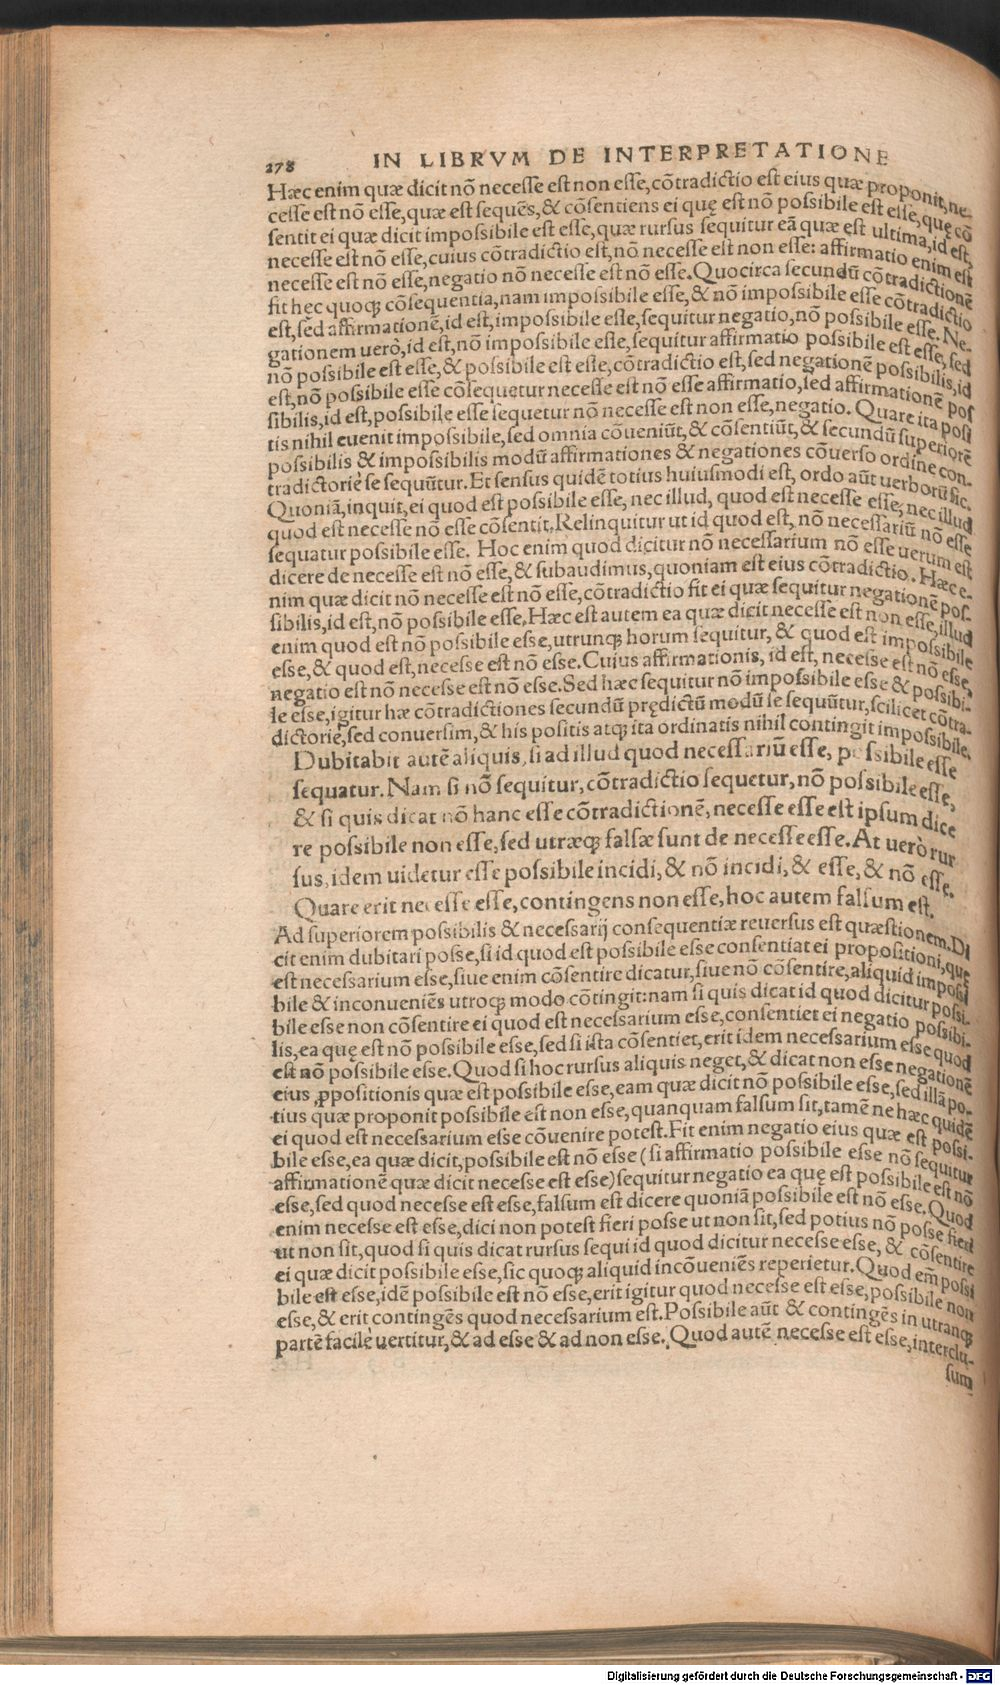 278 IN LIBRVM DE INTERPRETATIONE
Hæc enim quæ dicit nõ necesse est non esse, cõtradictio est eius quæ proponit, ne-
cesse est nõ esse, quæ est sequẽs, & cõsentiens ei quę est nõ possibile est esse, quę cõ
sentit ei quæ dicit impossibile est esse, quæ rursus sequitur eã quæ est ultima, id est,
necesse est nõ esse, cuius cõtradictio est, nõ necesse est non esse: affirmatio enim est
necesse est nõ esse, negatio nõ necesse est nõ esse. Quocirca secundũ cõtradictionẽ
fit hęc quoqꝫ cõsequentia, nam impossibile esse, & nõ impossibile esse cõtradictio
est, sed affirmationẽ, id est, impossibile esse, sequitur negatio, nõ possibile esse. Ne-
gationem uerò, id est, nõ impossibile esse, sequitur affirmatio possibile est esse, sed
nõ possibile est esse, & possibile est esse, cõtradictio est, sed negationẽ possibilis, id
est, nõ possibile esse cõsequetur necesse est nõ esse affirmatio, sed affirmationẽ pos
sibilis, id est, possibile esse sequetur nõ necesse est non esse, negatio. Quare ita posi
tis nihil euenit impossibile, sed omnia cõueniũt, & cõsentiũt, & secundũ superiorẽ
possibilis & impossibilis modũ affirmationes & negationes cõuerso ordine con-
tradictoriè se sequũtur. Et sensus quidẽ totius huiusmodi est, ordo aũt uerborũ sic.
Quoniã, inquit, ei quod est possibile esse, nec illud, quod est necesse esse, nec illud
quod est necesse nõ esse cõsentit. Relinquitur ut id quod est, nõ necessariũ nõ esse
sequatur possibile esse. Hoc enim quod dicitur nõ necessarium nõ esse uerum est
dicere de necesse est nõ esse, & subaudimus, quoniam est eius cõtradictio. Hæc e-
nim quæ dicit nõ necesse est nõ esse, cõtradictio fit ei quæ sequitur negationẽ pos-
sibilis, id est, nõ possibile esse. Hæc est autem ea quæ dicit necesse est non esse, illud
enim quod est nõ possibile esse, utrunqꝫ horum sequitur, & quod est impossibile
esse, & quod est, necesse est nõ esse. Cuius affirmationis, id est, necesse est nõ esse,
negatio est nõ necesse est nõ esse. Sed hæc sequitur nõ impossibile esse & possibi-
le esse, igitur hæ cõtradictiones secundũ prędictũ modũ se sequũtur, scilicet cõtra-
dictoriè, sed conuersim, & his positis atqꝫ ita ordinatis nihil contingit impossibile.
Dubitabit autẽ aliquis, si ad illud quod necessariũ esse, possibile esse
sequatur. Nam si nõ sequitur, cõtradictio sequetur, nõ possibile esse,
& si quis dicat nõ hanc esse cõtradictionẽ, necesse esse est ipsum dice
re possibile non esse, sed utræqꝫ falsæ sunt de necesse esse. At uerò rur
sus, idem uidetur esse possibile incidi, & nõ incidi, & esse, & nõ esse.
Quare erit necesse esse, contingens non esse, hoc autem falsum est.
Ad superiorem possibilis & necessarij consequentiæ reuersus est quæstionem. Di
cit enim dubitari posse, si id quod est possibile esse consentiat ei propositioni, quę
est necessarium esse, siue enim cõsentire dicatur, siue nõ cõsentire, aliquid impossi
bile & inconueniẽs utroqꝫ modo cõtingit: nam si quis dicat id quod dicitur possi-
bile esse non cõsentire ei quod est necessarium esse, consentiet ei negatio possibi-
lis, ea quę est nõ possibile esse, sed si ista cõsentiet, erit idem necessarium esse quod
est nõ possibile esse. Quod si hoc rursus aliquis neget, & dicat non esse negationẽ
eius ꝓpositionis quæ est possibile esse, eam quæ dicit nõ possibile esse, sed illã po-
tius quæ proponit possibile est non esse, quanquam falsum sit, tamẽ ne hæc quidẽ
ei quod est necessarium esse cõuenire potest. Fit enim negatio eius quæ est possi-
bile esse, ea quæ dicit, possibile est nõ esse (si affirmatio possibile esse nõ sequitur
affirmationẽ quæ dicit necesse est esse) sequitur negatio ea quę est possibile est nõ
esse, sed quod necesse est esse, falsum est dicere quoniã possibile est nõ esse. Quod
enim necesse est esse, dici non potest fieri posse ut non sit, sed potius nõ posse fieri
ut non sit, quod si quis dicat rursus sequi id quod dicitur necesse esse, & cõsentire
ei quæ dicit possibile esse, sic quoqꝫ aliquid incõueniẽs reperietur. Quod em̃ possi
bile est esse, idẽ possibile est nõ esse, erit igitur quod necesse est esse, possibile non
esse, & erit contingẽs quod necessarium est. Possibile aũt & contingẽs in utranqꝫ
partẽ facilè uertitur, & ad esse & ad non esse. Quod autẽ necesse est esse, interclu-
sum
Digitalisierung gefördert durch die Deutsche Forschungsgemeinschaft - DFG